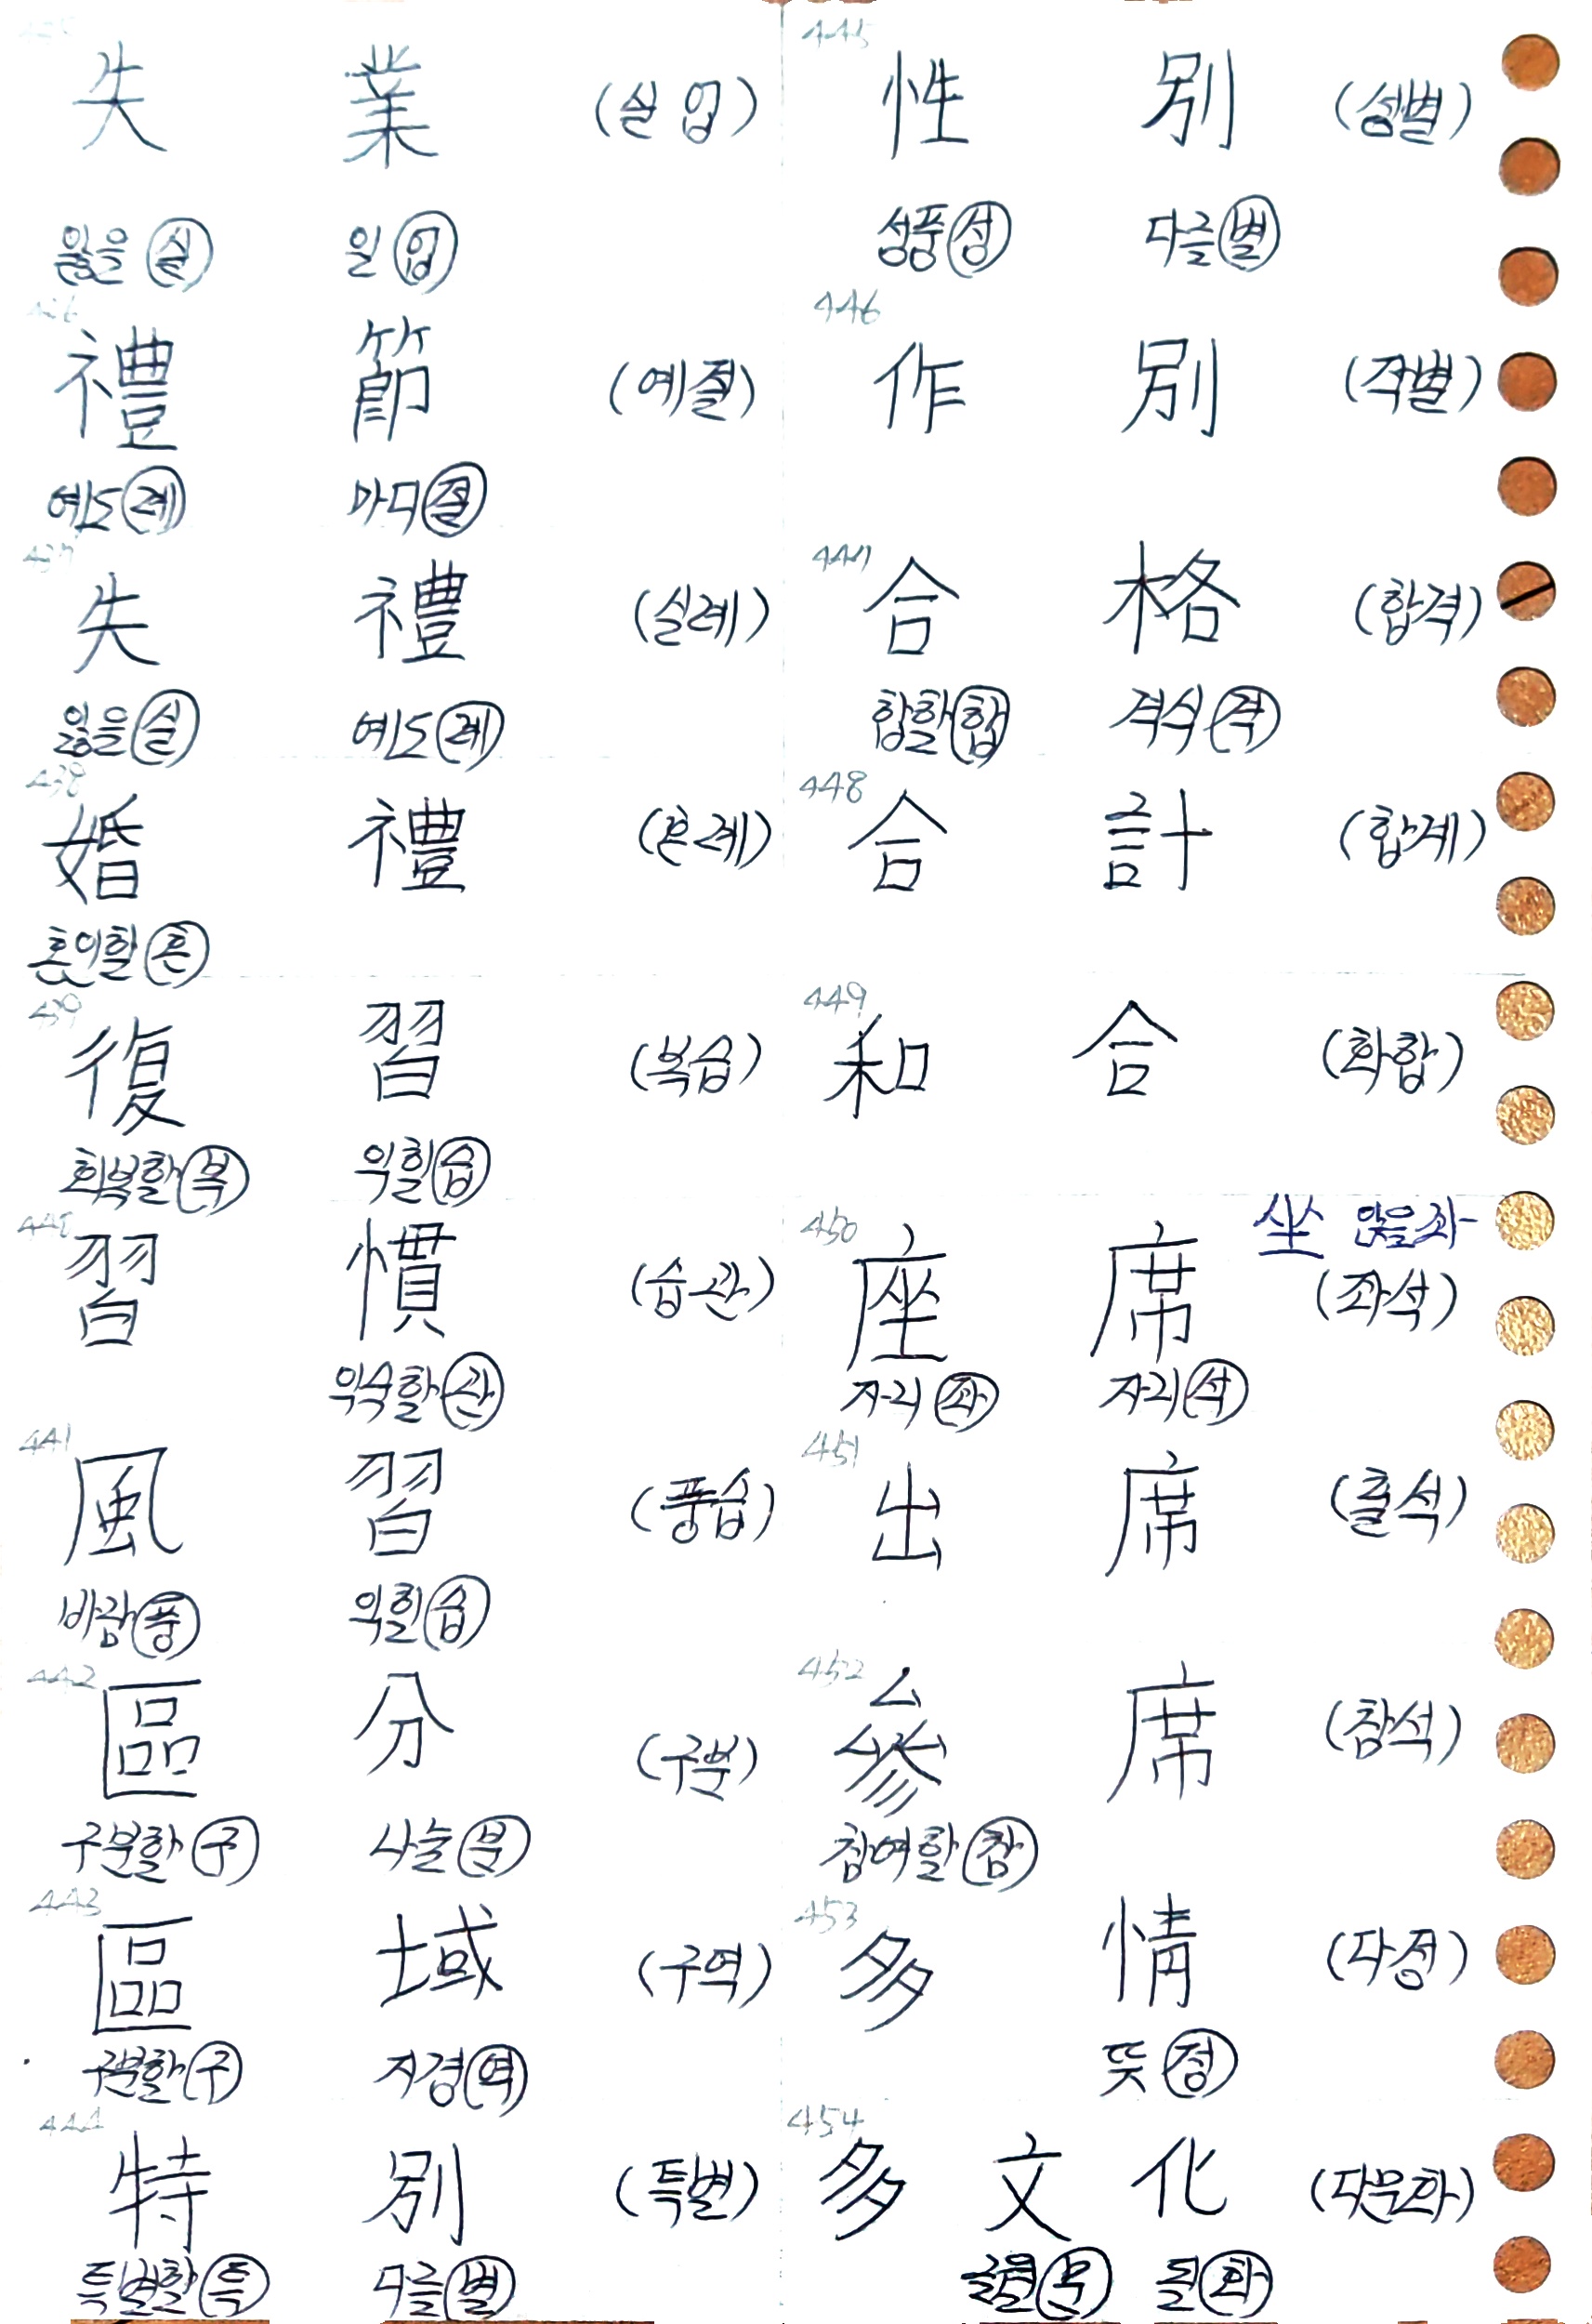 失 業 (실업)
잃을 실 일 업
436
禮 節 (예절)
예도 례 마디 절
437
失 禮 (실례)
잃을 실 예도 례
438
婚 禮 (혼례)
혼인할 혼
439
復 習 (복습)
회복할 복 익힐 습
440
習 慣 (습관)
익숙할 관
441
風 習 (풍습)
바람 풍 익힐 습
442
區 分 (구분)
구분할 구 나눌 분
443
區 域 (구역)
구분할 구 지경 역
444
特 別 (특별)
특별할 특 다를 별
445
性 別 (성별)
성품 성 다를 별
446
作 別 (작별)
447
合 格 (합격)
합할 합 격식 격
448
合 計 (합계)
449
和 合 (화합)
450
坐 앉을 좌
座 席 (좌석)
자리 좌 자리 석
451
出 席 (출석)
452
參 席 (참석)
참여할 참
453
多 情 (다정)
뜻 정
454
多 文 化 (다문화)
글월 문 될 화